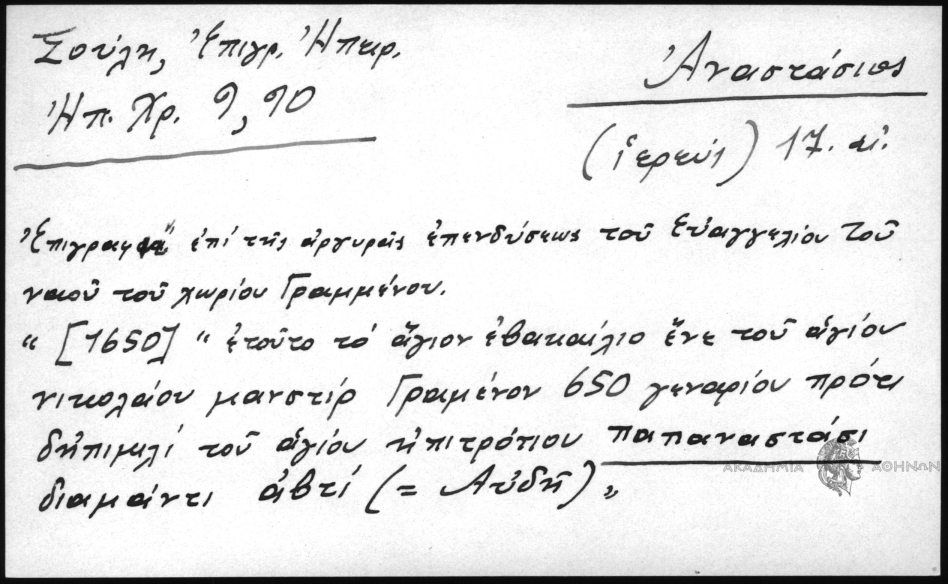 Σούλη, Ἐπιγρ. Ἠπειρ.
Ἠπ. Χρ. 9, 90
Ἀναστάσιος
(ἱερεύς) 17. αἰ.
Ἐπιγραφή ἐπί τῆς ἀργυρᾶς ἐπενδύσεως τοῦ Εὐαγγελίου τοῦ
ναοῦ τοῦ χωρίου Γραμμένου.
“[1650]“ ἐτοῦτο τό ἅγιον ἐβακαίλιο ἔνε τοῦ ἁγίου
νικολάου μανστίρ Γραμένον 650 γεναρίου πρότι
δηπιμελί τοῦ ἁγίου ἠπιτρόπιου παπαναστάσι
διαμάντι ἀβτί (= Αὐδῆ)„
ΑΚΑΔΗΜΙΑ ΑΘΗΝΩΝ